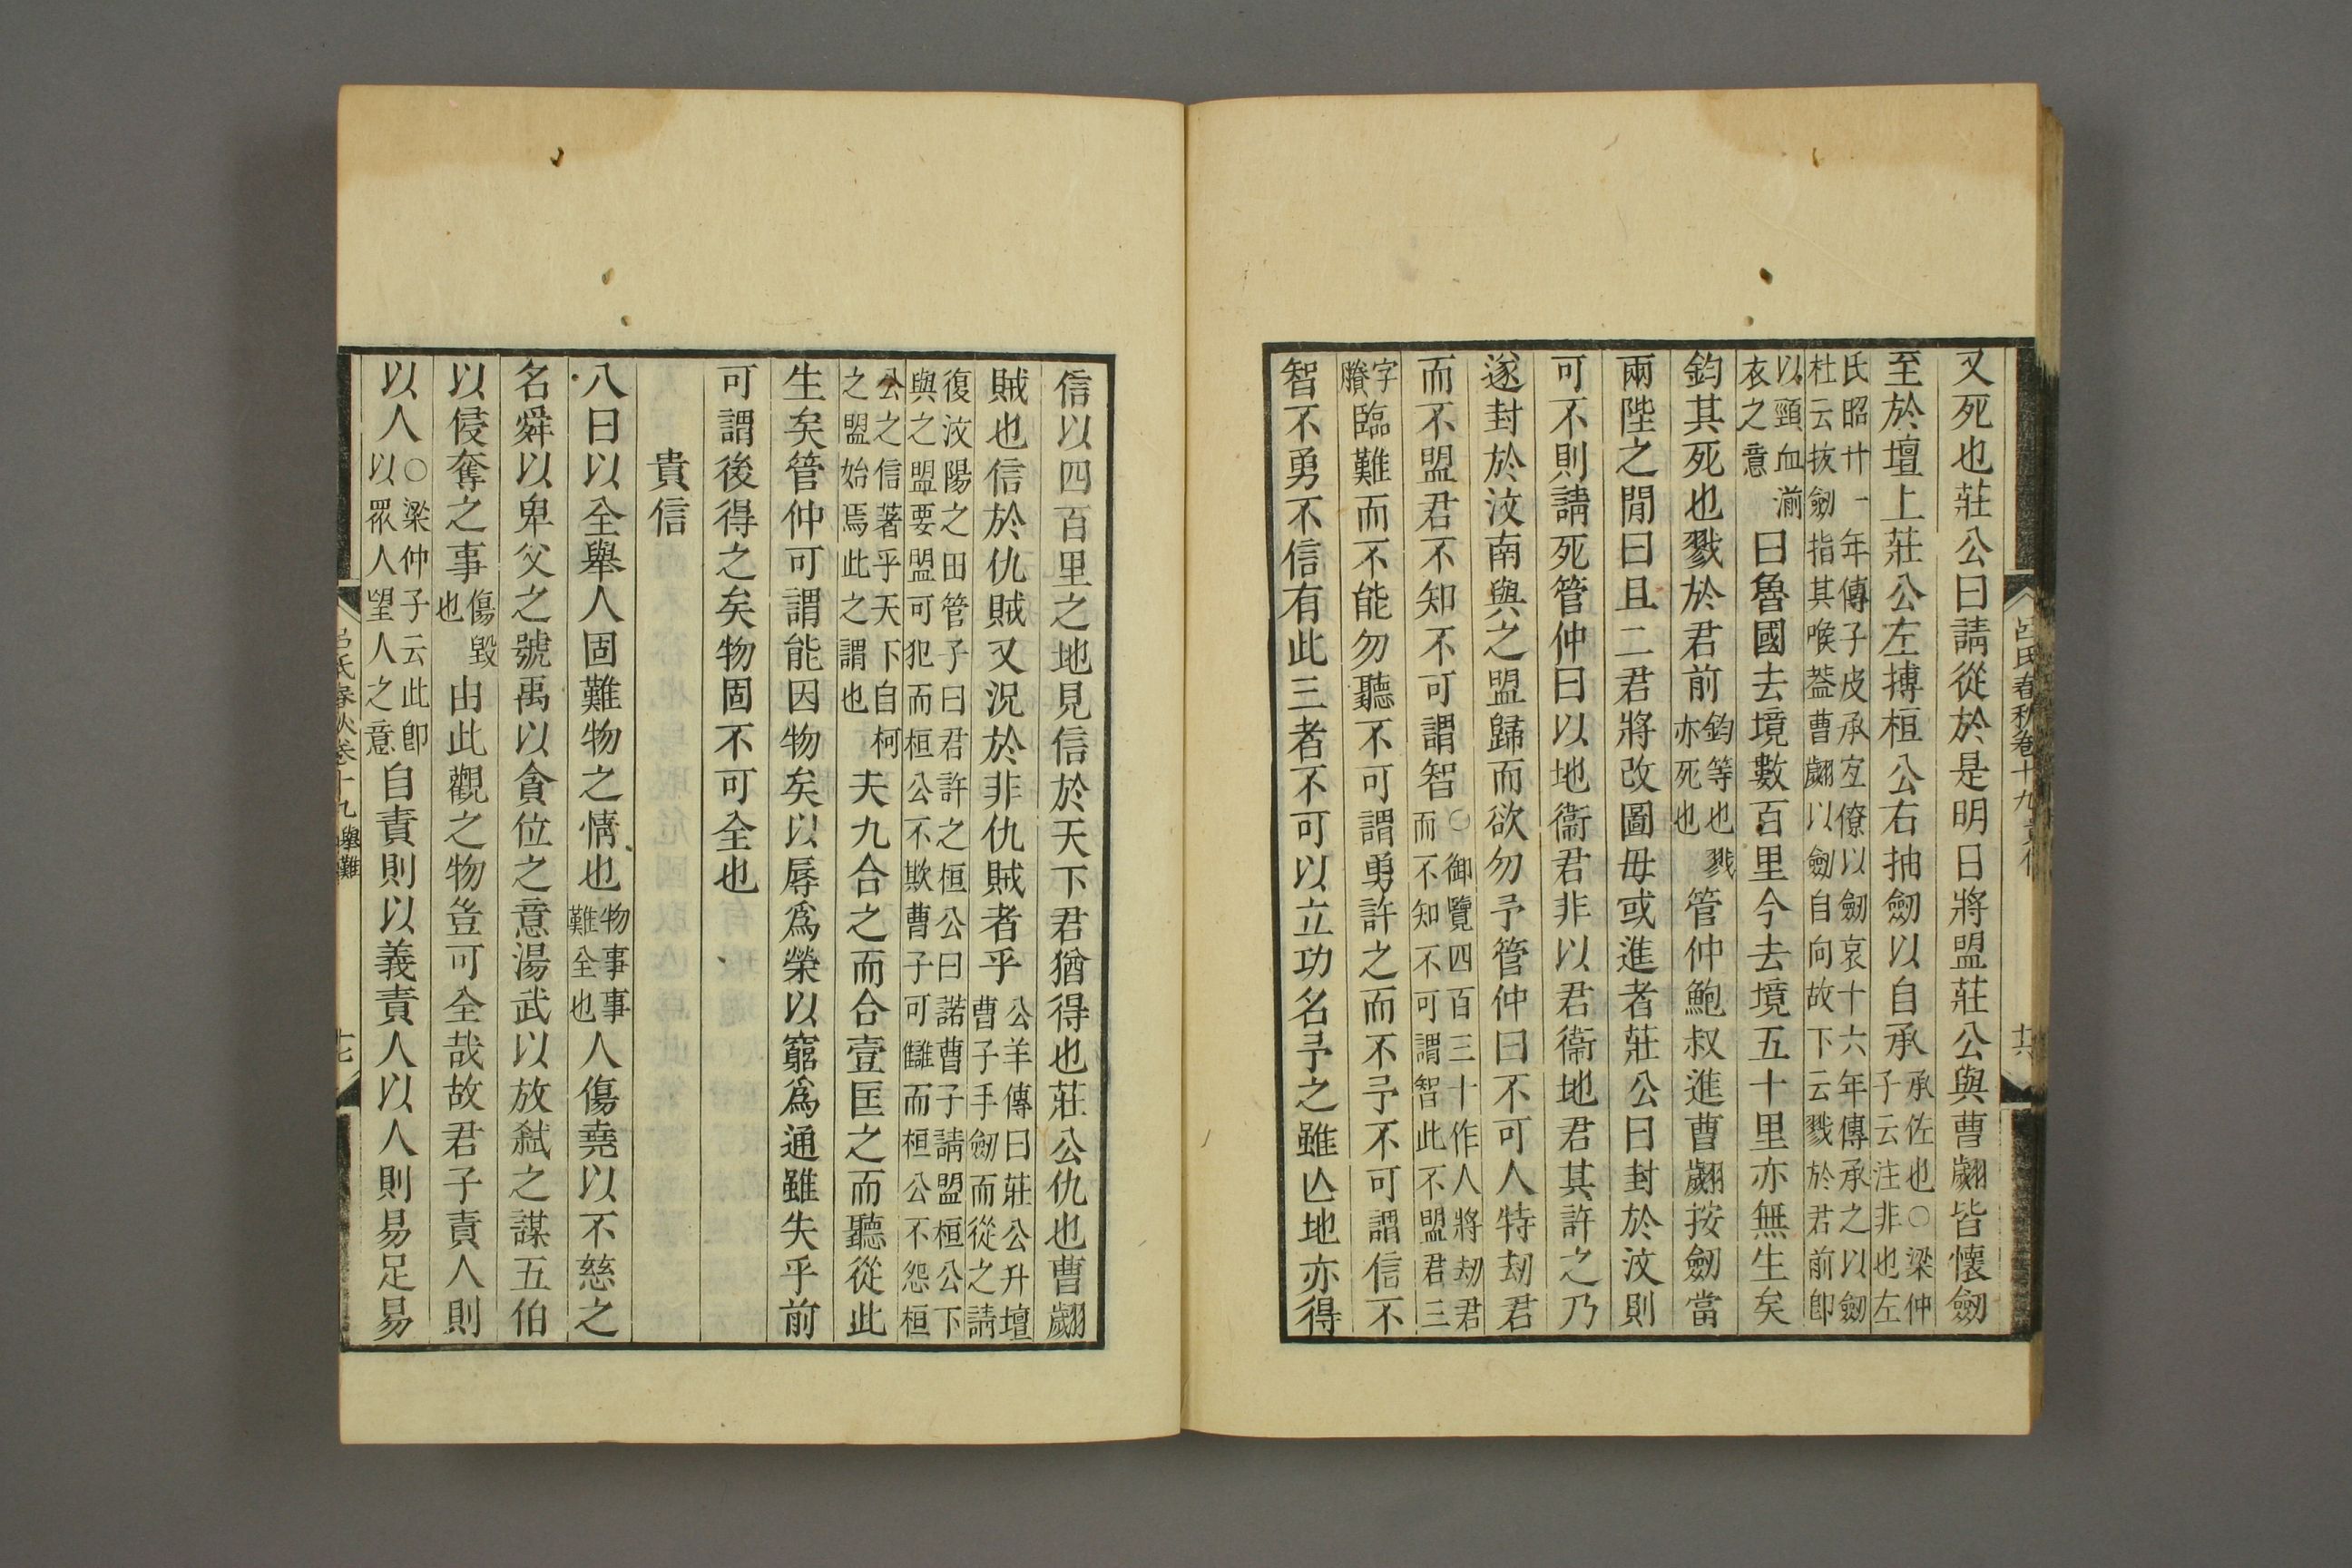 呂氏春秋卷十九
又死也莊公曰請從於是明日將盟莊公與曹翽皆懷劒
至於壇上莊公左搏桓公右抽劒以自承承佐也○梁仲子云注非也左
氏昭廿一年傳子皮承宜僚以劒哀十六年傳承之以劒杜云拔劒指其喉葢曹翽以劒自向故下云戮於君前卽
以頸血湔衣之意曰魯國去境數百里今去境五十里亦無生矣
鈞其死也戮於君前鈞等也戮亦死也管仲鮑叔進曹翽按劒當
兩陛之閒曰且二君將改圖毋或進者莊公曰封於汶則
可不則請死管仲曰以地衞君非以君衞地君其許之乃
遂封於汶南與之盟歸而欲勿予管仲曰不可人特劫君
而不盟君不知不可謂智○御覽四百三十作人將劫君而不知不可謂智此不盟君三
字賸臨難而不能勿聽不可謂勇許之而不予不可謂信不
智不勇不信有此三者不可以立功名予之雖亾地亦得
信以四百里之地見信於天下君猶得也莊公仇也曹翽
賊也信於仇賊又況於非仇賊者乎公羊傳曰莊公升壇曹子手劒而從之請
復汶陽之田管子曰君許之桓公曰諾曹子請盟桓公下與之盟要盟可犯而桓公不欺曹子可讎而桓公不怨桓
公之信著乎天下自柯之盟始焉此之謂也夫九合之而合壹匡之而聽從此
生矣管仲可謂能因物矣以辱爲榮以窮爲通雖失乎前
可謂後得之矣物固不可全也
貴信
八曰以全舉人固難物之情也物事事難全也人傷堯以不慈之
名舜以卑父之號禹以貪位之意湯武以放弒之謀五伯
以侵奪之事傷毀也由此觀之物豈可全哉故君子責人則
以人○梁仲子云此卽以眾人望人之意自責則以義責人以人則易足易
呂氏春秋卷十九舉難
十七